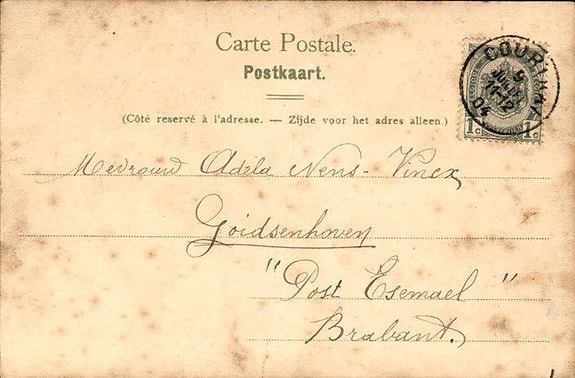 Carte Postale.
Postkaart.
(Côté reservé à l'adresse. — Zijde voor het adres alleen.)
COURTRAI
9
JUIL
11-12
04
1c 1c
Mevrouw Adéla Nens-Vincx
Goidsenhoven
"Post Esemael"
Brabant.